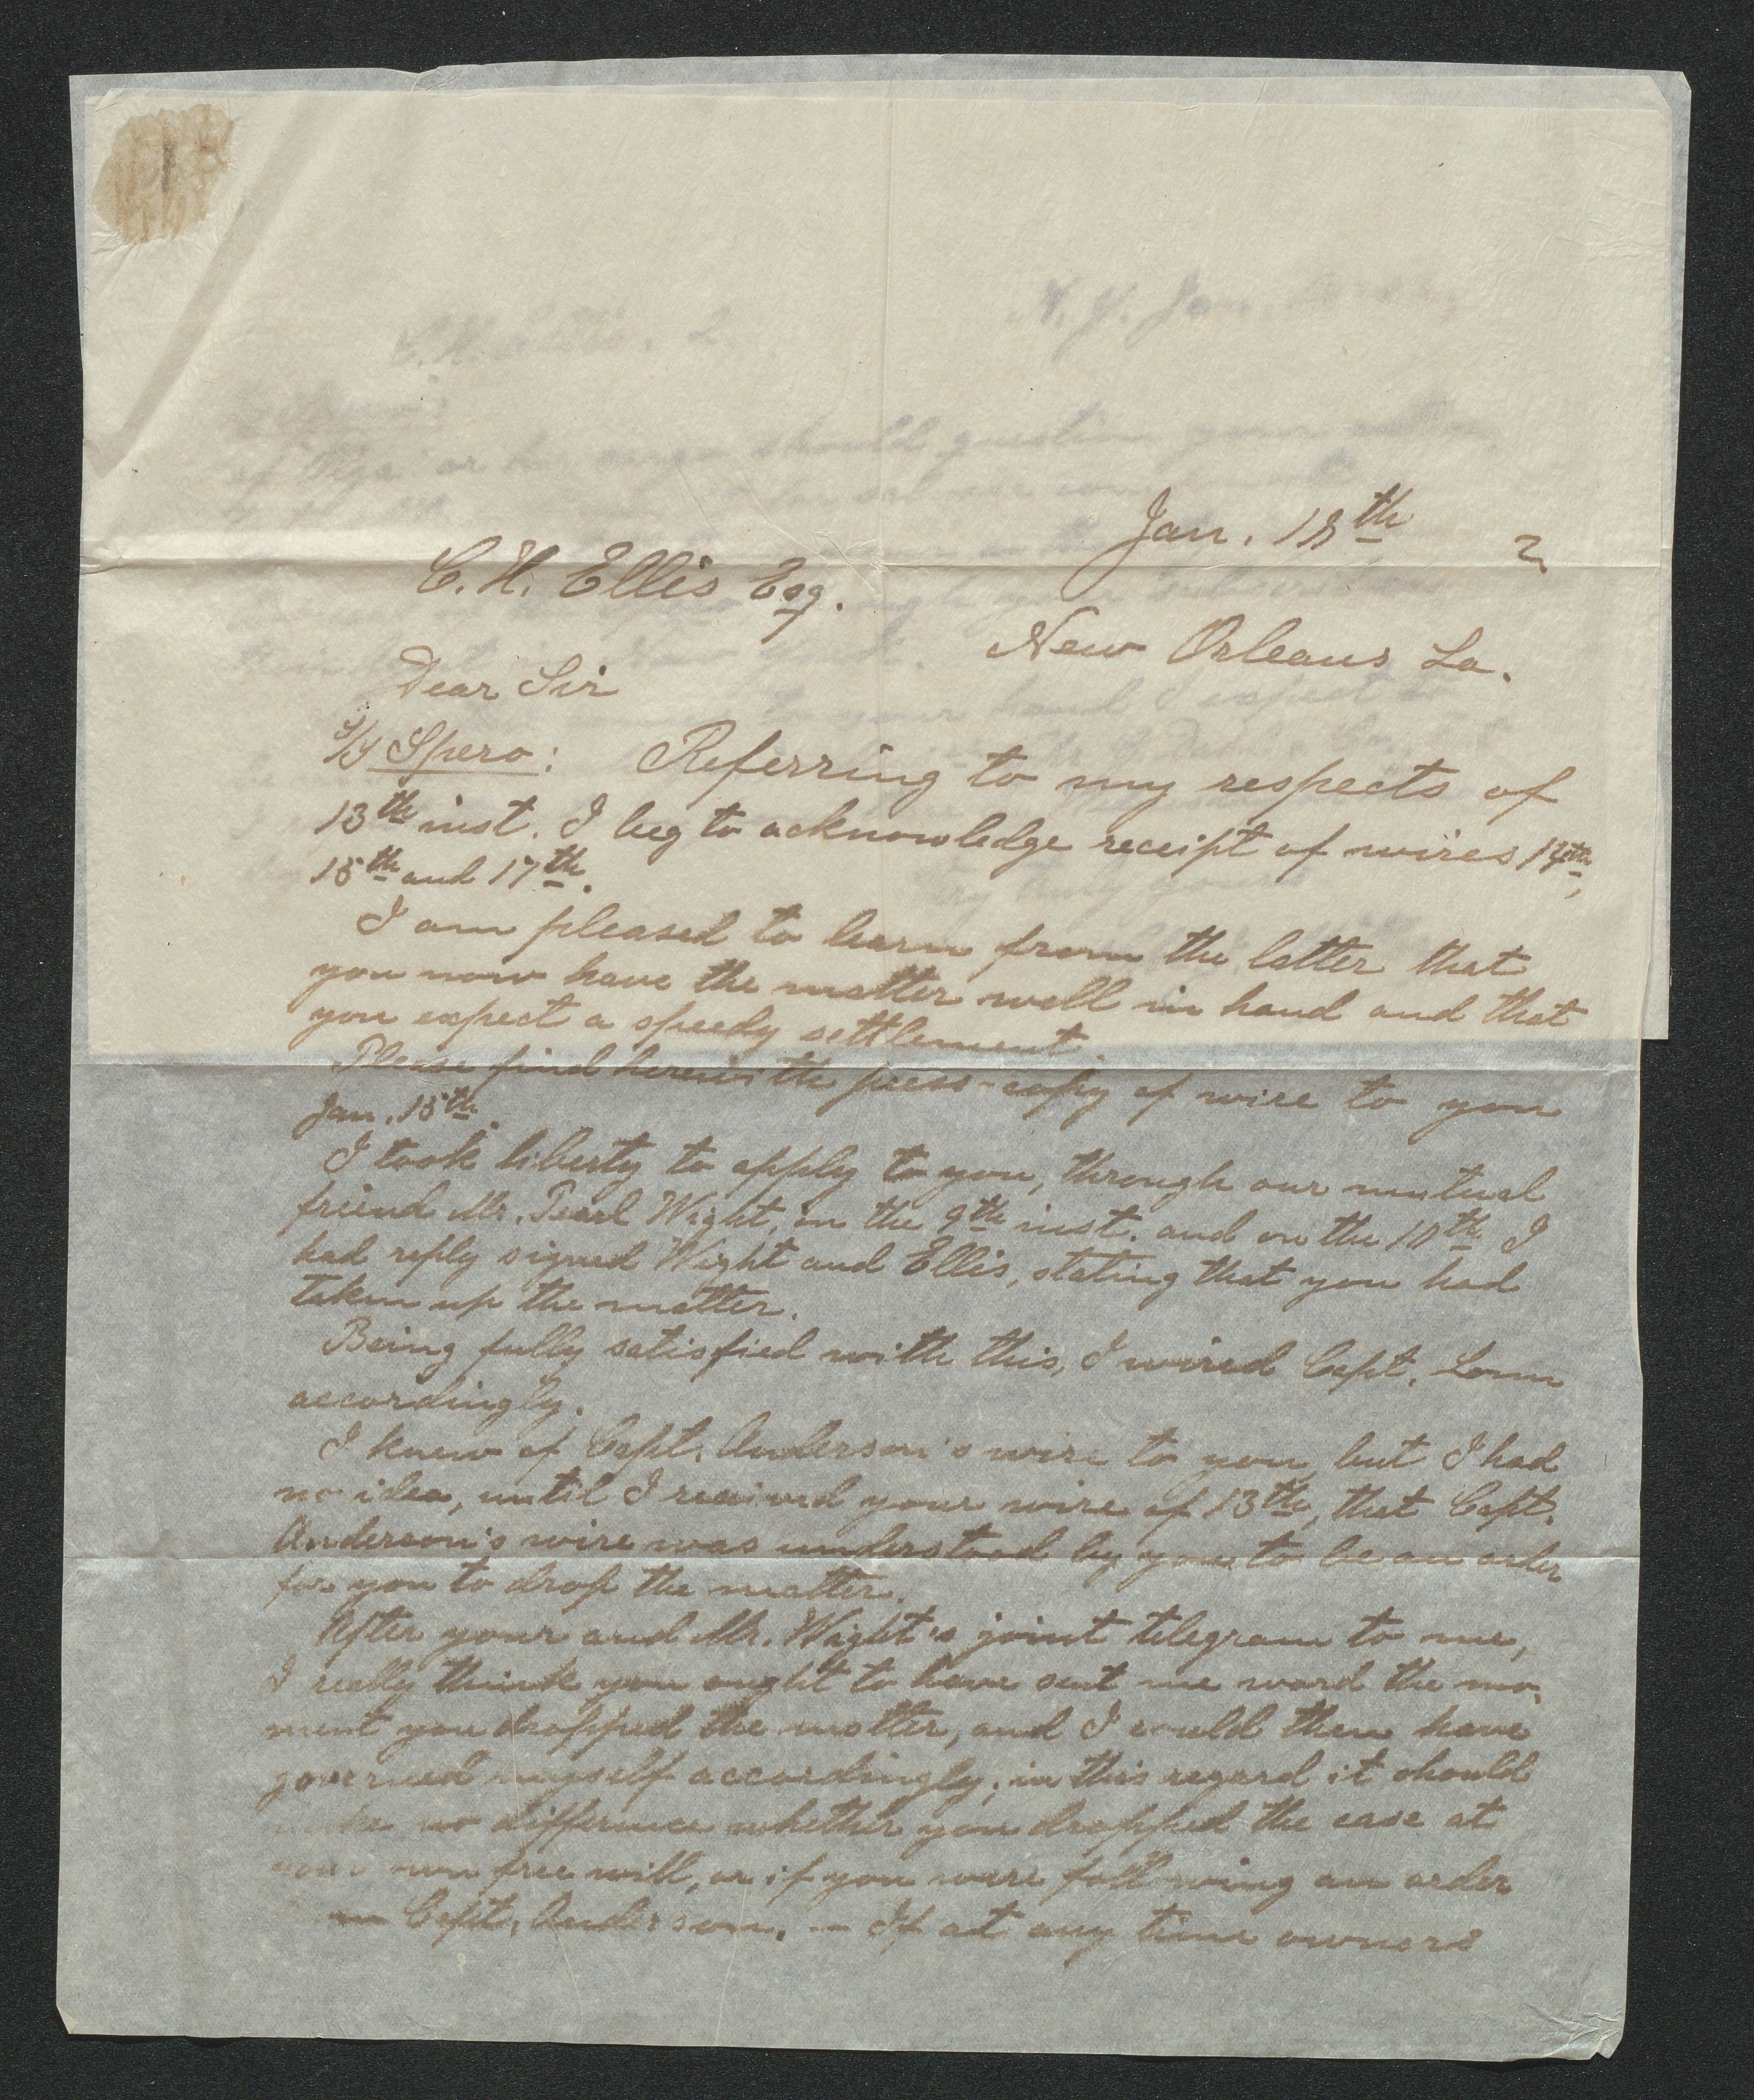 Jan. 18th 2
C. H. Ellis Esq.
New Orleans La.
Dear Sir
S/S Spero: Referring to my respects of
13th inst. I beg to acknowledge receipt of wires 14th,
15th and 17th.
I am pleased to learn from the latter that
you now have the matter well in hand and that
you expect a speedy settlement.
Please find herewith press-copy of wire to you
Jan. 15th.
I took liberty to apply to you, through our mutual
friend Mr. Pearl Wight, on the 9th inst. and on the 10th I
had reply signed Wight and Ellis, stating that you had
taken up the matter.
Being fully satisfied with this, I wired Capt. Lonn
accordingly.
I knew of Capt. Anderson's wire to you, but I had
no idea, until I received your wire of 13th, that Capt.
Anderson's wire was understood by you to be an order
for you to drop the matter.
After your and Mr. Wight's joint telegram to me,
I really think you ought to have sent me word the mo-
ment you dropped the matter, and I could then have
governed myself accordingly; in this regard it should
make no difference whether you dropped the case at
your own free will, or if you were following an order
Capt. Anderson. — If at any time owners
N. Y. Jan.
C. H. Ellis. 2
of "Olga" or her cargo should question your